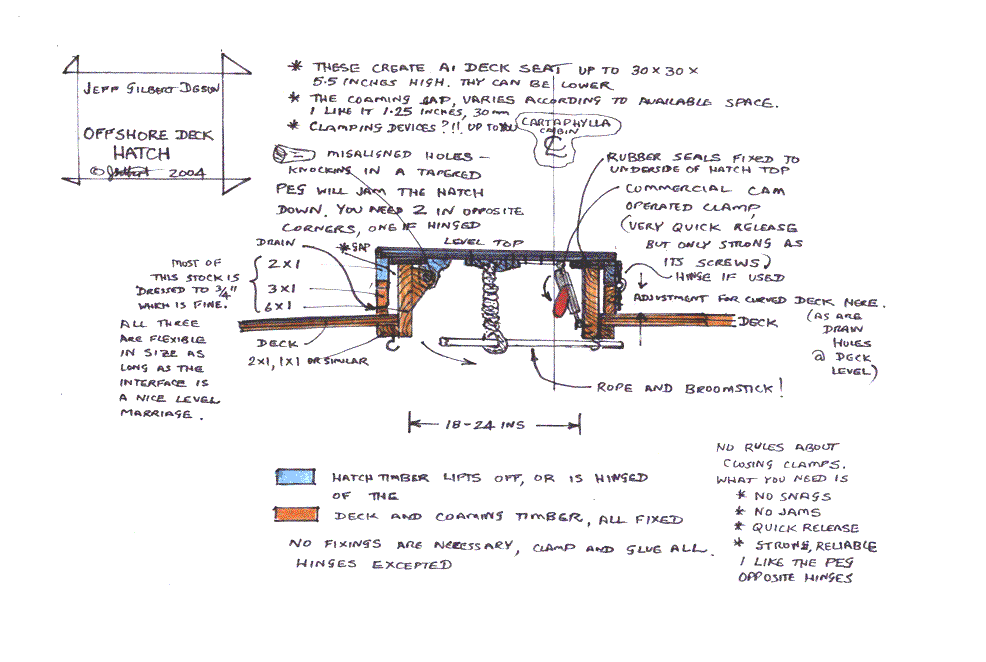 JEFF GILBERT DESIGN
OFFSHORE DECK
HATCH
© 2004
* THESE CREATE A1 DECK SEAT UP TO 30 x 30 x
5.5 INCHES HIGH. THY CAN BE LOWER
* THE COAMING GAP, VARIES ACCORDING TO AVAILABLE SPACE.
I LIKE IT 1.25 INCHES, 30mm
* CLAMPING DEVICES?!! UP TO YOU
CARTAPHYLLA
CABIN
CL
MISALIGNED HOLES –
KNOCKING IN A TAPERED
PEG WILL JAM THE HATCH
DOWN. YOU NEED 2 IN OPPOSITE
CORNERS, ONE IF HINGED
RUBBER SEALS FIXED TO
UNDERSIDE OF HATCH TOP
COMMERCIAL CAM
OPERATED CLAMP
(VERY QUICK RELEASE
BUT ONLY STRONG AS
ITS SCREWS)
HINGE IF USED
DRAIN
* GAP
LEVEL TOP
MOST OF
THIS STOCK IS
DRESSED TO 3/4"
WHICH IS FINE.
2 x 1
3 x 1
6 x 1
ALL THREE
ARE FLEXIBLE
IN SIZE AS
LONG AS THE
INTERFACE IS
A NICE LEVEL
MARRIAGE.
DECK
2x1, 1x1 OR SIMILAR
ADJUSTMENT FOR CURVED DECK HERE.
(AS ARE
DRAIN
HOLES
@ DECK
LEVEL)
DECK
ROPE AND BROOMSTICK!
18-24 INS
HATCH TIMBER LIFTS OFF, OR IS HINGED
OF THE
DECK AND COAMING TIMBER, ALL FIXED
NO FIXINGS ARE NECESSARY, CLAMP AND GLUE ALL.
HINGES EXCEPTED
NO RULES ABOUT
CLOSING CLAMPS.
WHAT YOU NEED IS
* NO SNAGS
* NO JAMS
* QUICK RELEASE
* STRONG, RELIABLE
I LIKE THE PEG
OPPOSITE HINGES